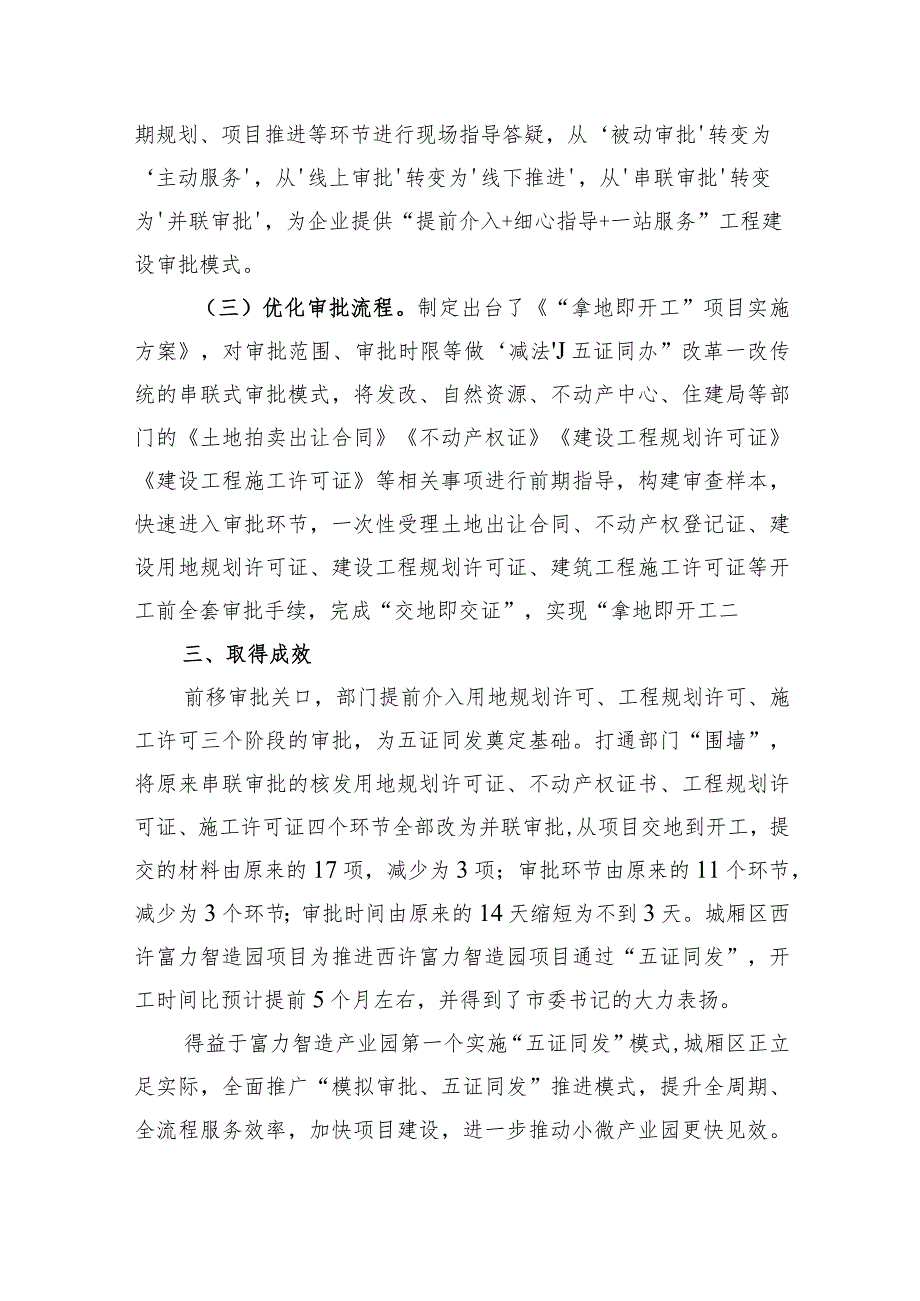 期规划、项目推进等环节进行现场指导答疑，从‘被动审批'转变为
‘主动服务'，从'线上审批'转变为'线下推进'，从'串联审批'转变
为'并联审批'，为企业提供“提前介入+细心指导+一站服务”工程建
设审批模式。
（三）优化审批流程。制定出台了《“拿地即开工”项目实施
方案》，对审批范围、审批时限等做‘减法'J五证同办”改革一改传
统的串联式审批模式，将发改、自然资源、不动产中心、住建局等部
门的《土地拍卖出让合同》《不动产权证》《建设工程规划许可证》
《建设工程施工许可证》等相关事项进行前期指导，构建审查样本，
快速进入审批环节，一次性受理土地出让合同、不动产权登记证、建
设用地规划许可证、建设工程规划许可证、建筑工程施工许可证等开
工前全套审批手续，完成“交地即交证”，实现“拿地即开工二
三、取得成效
前移审批关口，部门提前介入用地规划许可、工程规划许可、施
工许可三个阶段的审批，为五证同发奠定基础。打通部门“围墙”，
将原来串联审批的核发用地规划许可证、不动产权证书、工程规划许
可证、施工许可证四个环节全部改为并联审批,从项目交地到开工，提
交的材料由原来的17项，减少为3项；审批环节由原来的11个环节，
减少为3个环节；审批时间由原来的14天缩短为不到3天。城厢区西
许富力智造园项目为推进西许富力智造园项目通过“五证同发”，开
工时间比预计提前5个月左右，并得到了市委书记的大力表扬。
得益于富力智造产业园第一个实施“五证同发”模式,城厢区正立
足实际，全面推广“模拟审批、五证同发”推进模式，提升全周期、
全流程服务效率，加快项目建设，进一步推动小微产业园更快见效。